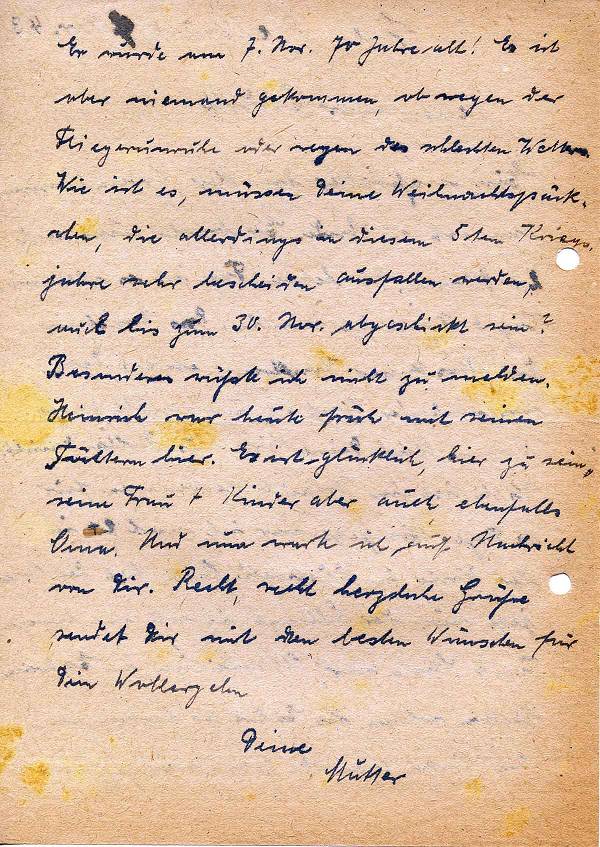 Er wurde am 7. Nov. 70 Jahre alt! Es ist
aber niemand gekommen, ob wegen der
Fliegerunruhe oder wegen des schlechten Wetters.
Wie ist es, müssen Deine Weihnachtspäck-
chen, die allerdings in diesem 5ten Kriegs-
jahre sehr bescheiden ausfallen werden,
auch bis zum 30. Nov. abgeschickt sein?
Besonderes wüßte ich nicht zu melden.
Heinrich war heute früh mit seinen
hier. Er ist glücklich, hier zu sein,
seine Frau + Kinder aber auch, ebenfalls
Oma. Und nun warte ich auf Nachricht
von Dir. Recht, recht herzliche Grüße
sendet Dir mit den besten Wünschen für
Dein Wohlergehn
Deine
Mutter